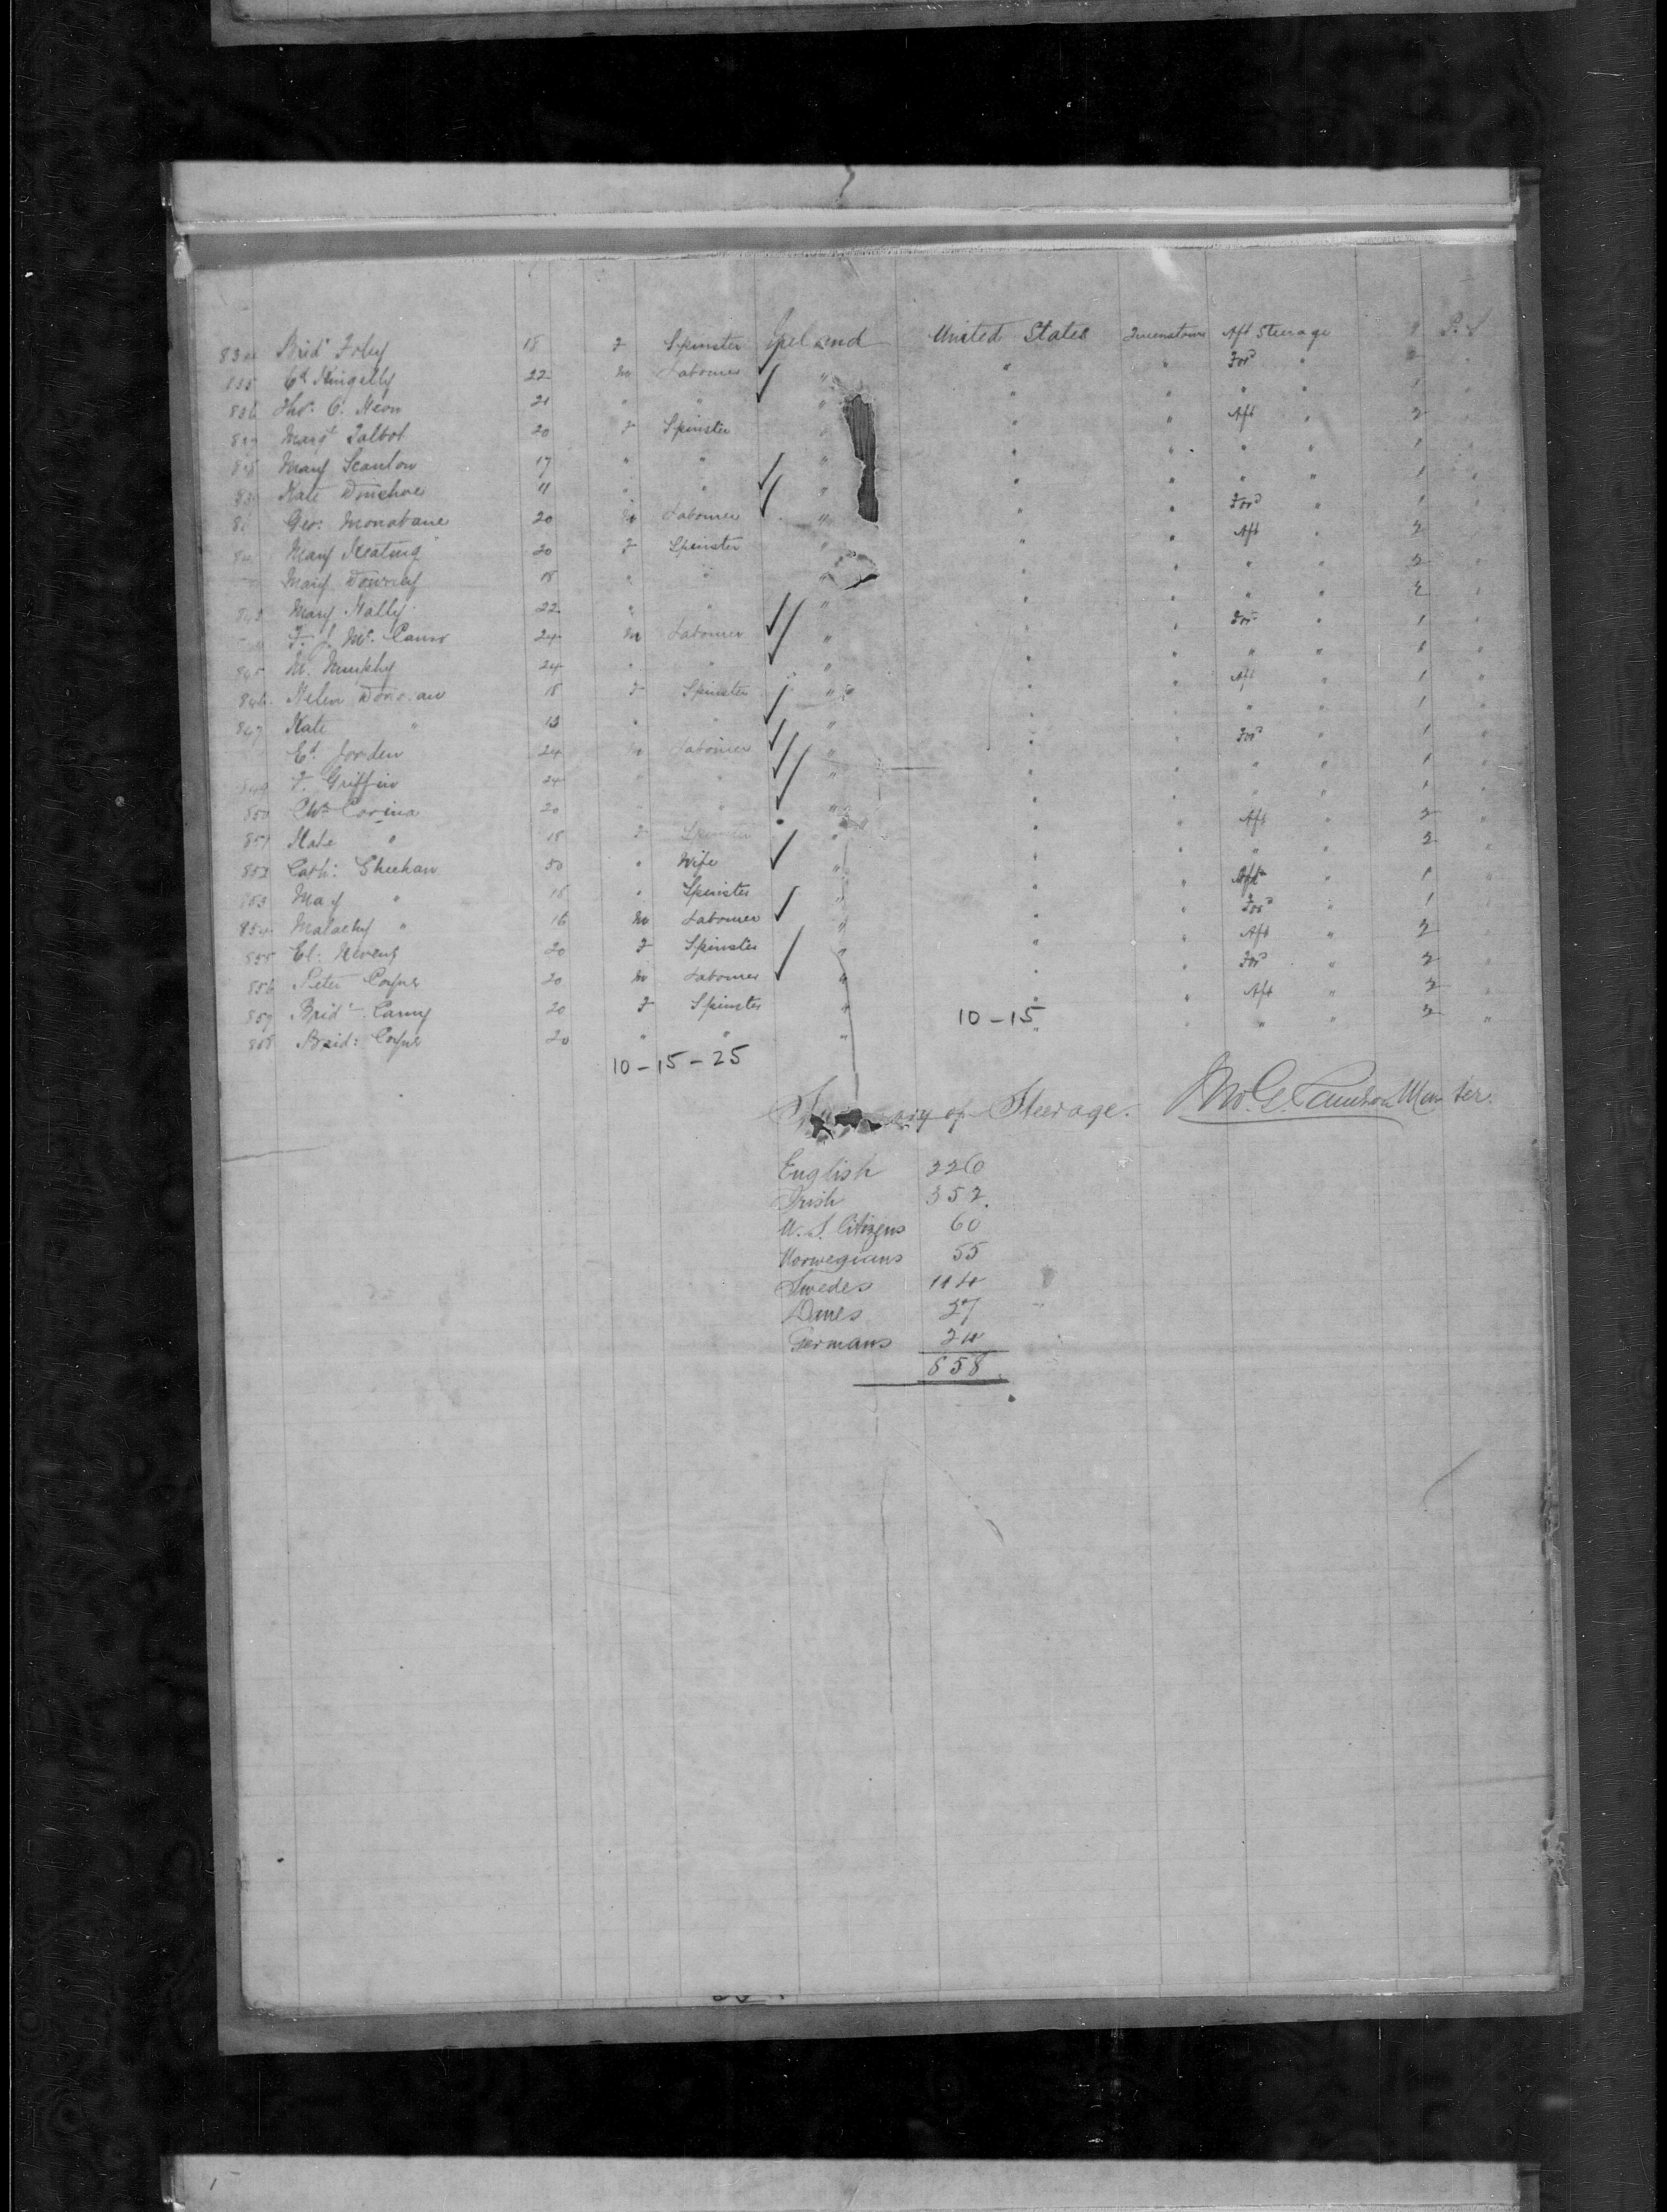 834 Brid^t Foley 18 F Spinster Ireland United States Queenstown Aft Steerage 2 P. S
835 22 M Labourer " " " For^d " 2 "
836 Tho^s O. 21 " " " " " " " 1 "
837 Marg^t Talbot 20 F Spinster " " " Aft " 2 "
838 Mary Scanlon 17 " " " " " " " 1 "
839 Kate Donehoe 11 " " " " " " " 1 "
84 Geo: Monabane 20 M Labourer " " " For^d " 1 "
84 Mary Keating 20 F Spinster " " " Aft " 2 "
Mary Downey 18 " " " " " " " 2 "
843 Mary Nally 22 " " " " " " " 2 "
F. J. M^c 24 M Labourer " " " For^d " 1 "
845 M. Murphy 24 " " " " " " " 1 "
846 Helen Donovan 18 F Spinster " " " Aft " 1 "
847 Kate " 13 " " " " " " " 1 "
E^d Jorden 24 M Labourer " " " For^d " 1 "
849 F. Griffin 24 " " " " " " " 1 "
850 Corina 20 " " " " " " " 1 "
851 Kate " 18 F Spinster " " " Aft " 2 "
852 Cath: Sheehan 50 " Wife " " " " " 2 "
853 May " 18 " Spinster " " " Aft " 1 "
854 Malachy " 16 M Labourer " " " For^d " 1 "
855 El: 20 F Spinster " " " Aft " 2 "
856 Peter Coyne 20 M Labourer " " " For^d " 2 "
857 Brid^t Carny 20 F Spinster " " " Aft " 2 "
858 Braid: Coyne 20 " " " " " " " 2 "
10-15
10-15-25
Summary of Steerage. Jno. G. Master.
English 226
Irish 352
U. S. Citizens 60
Norwegians 55
Swedes 114
Danes 27
Germans 24
858